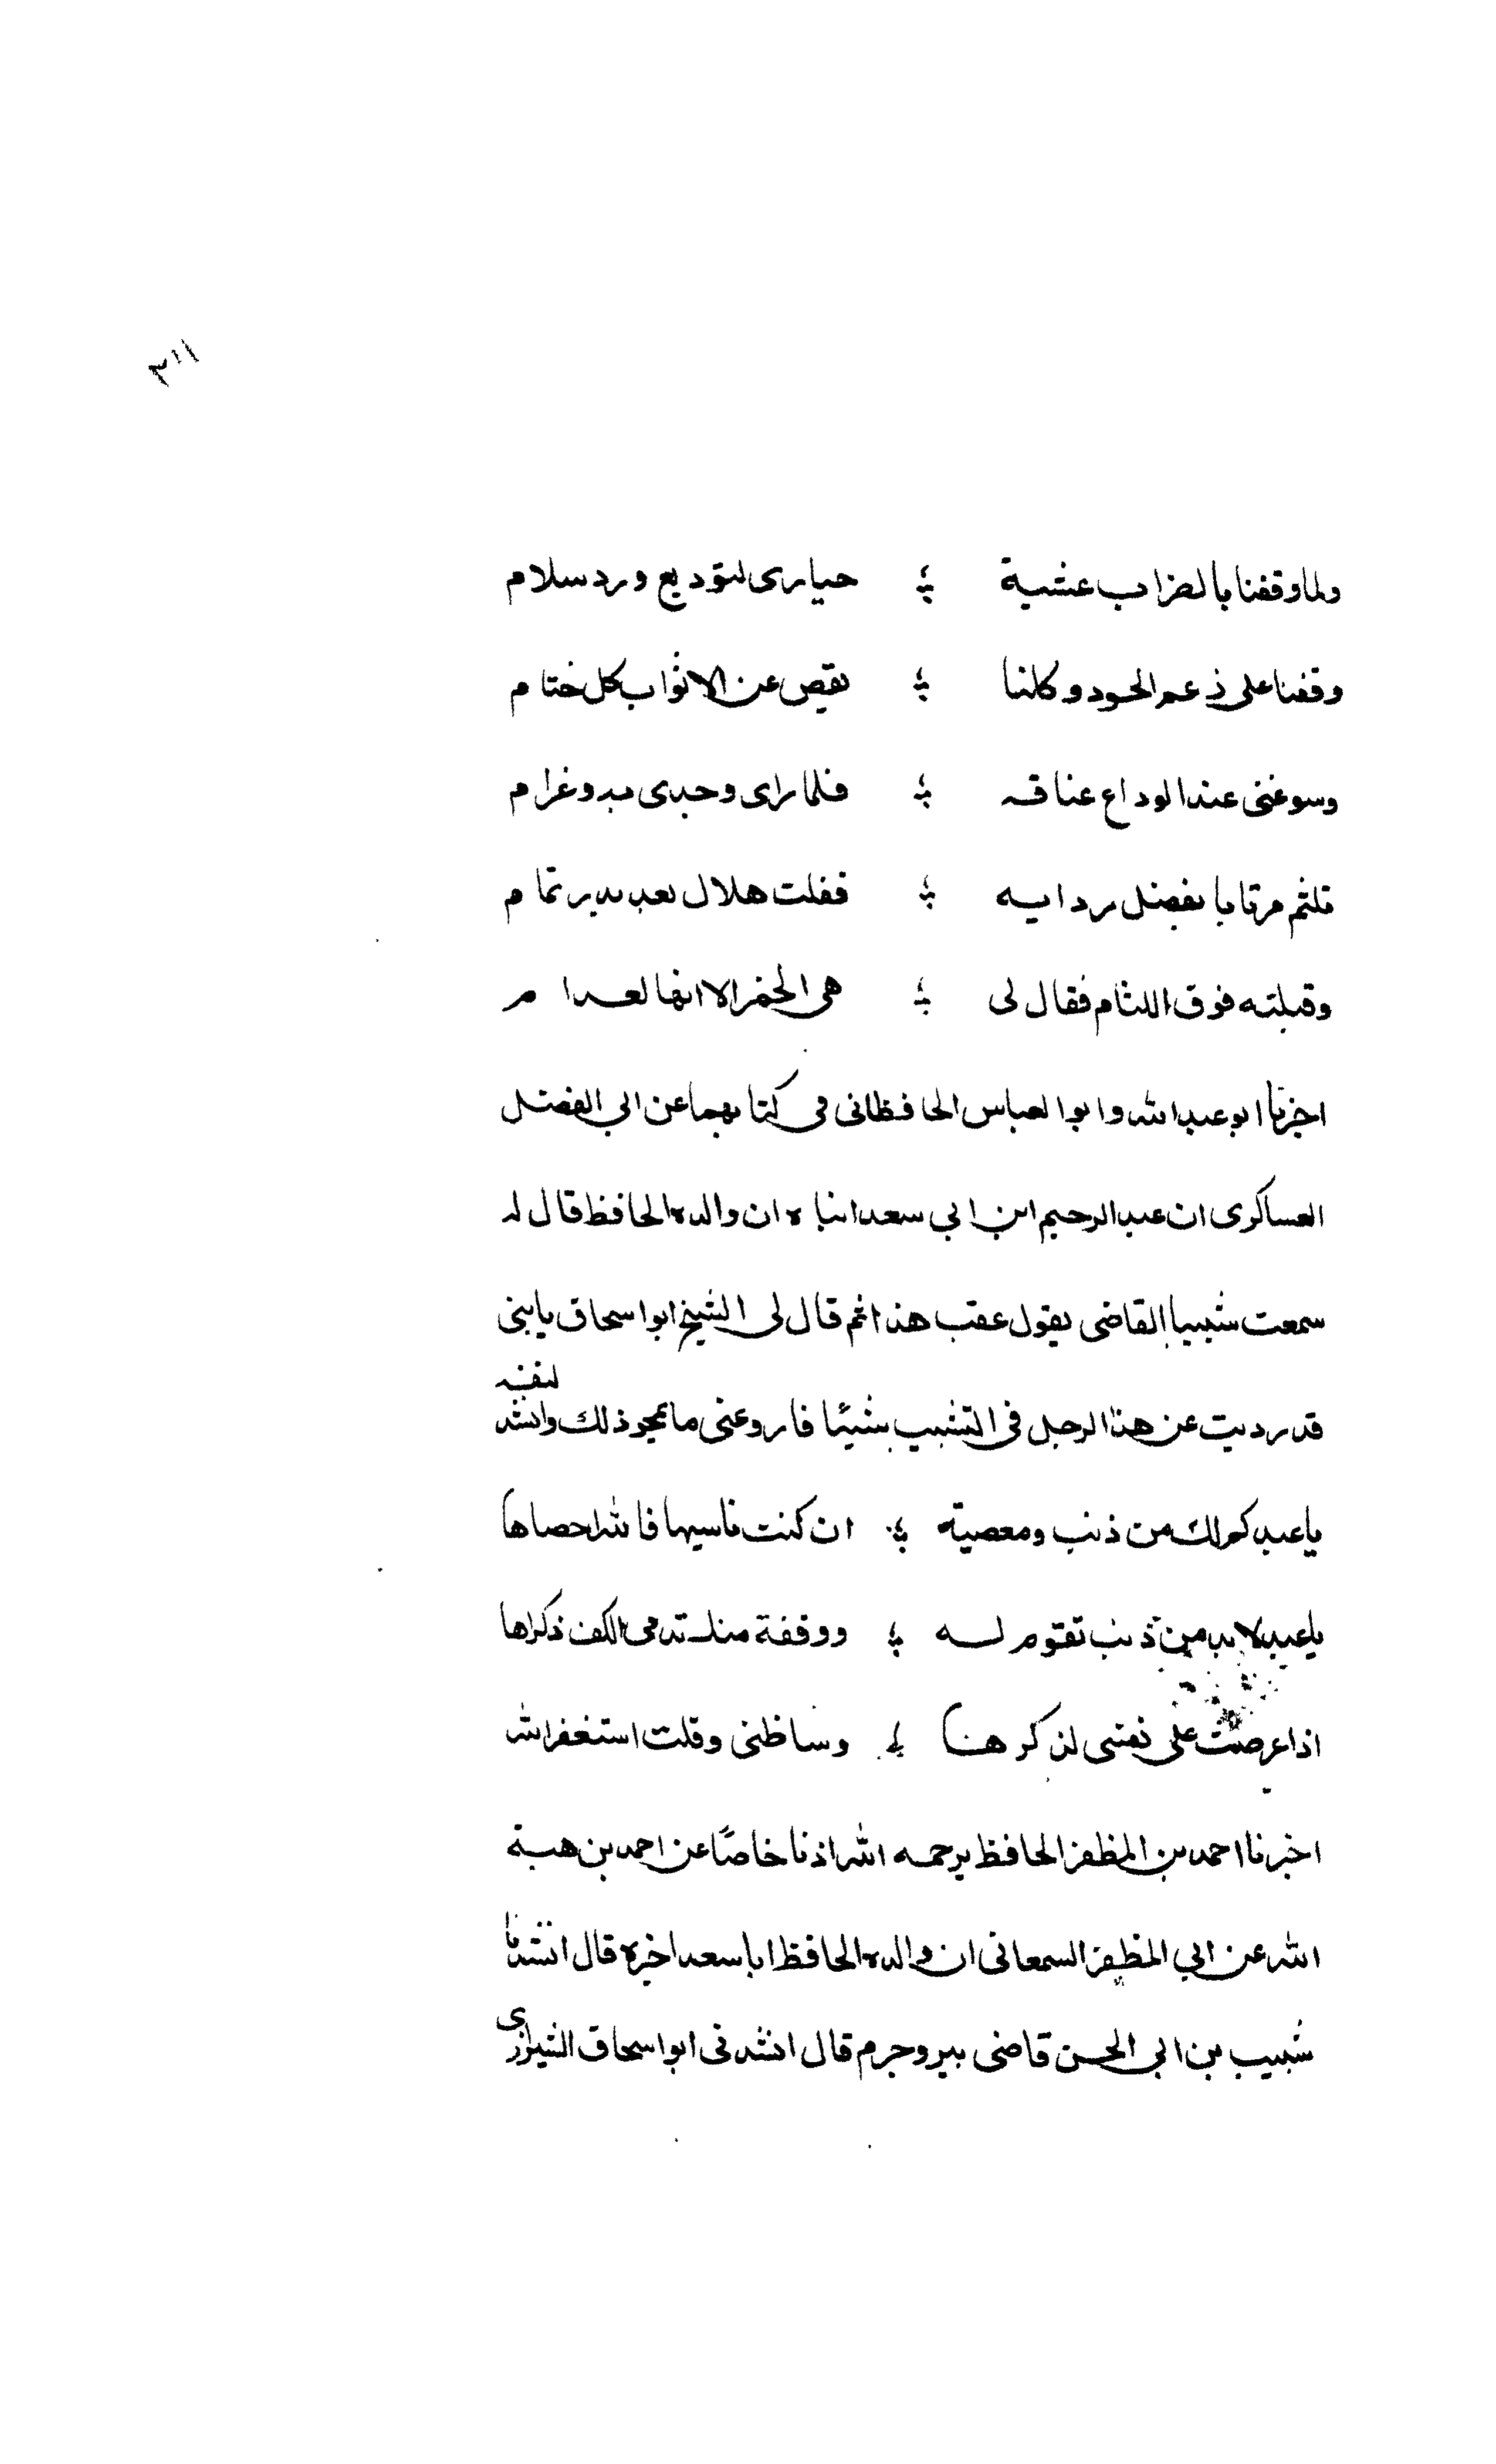 ٣١١
ولما وقفنا بالصراب عشية ؛ حيارى لتوديع ورد سلام
وقفنا على زعم الحسود وكلنا ؛ نفيض عن الاثواب كل ختام
وسوغني عند الوداع عناقه ؛ فلما راى وجدي به وغرام
تلثم مرتابا بفضل ردايه ؛ فقلت هلال بعد بدر تمام
وقبلته فوق اللثام فقال لى ؛ هى الخمر الا انها لفدام
اخبرنا ابو عبد الله وابو العباس الحافظانى فى كتابيهما عن ابي الفضل
العساكرى ان عبد الرحيم ابن ابي سعد انباه ان والده الحافظ قال له
سمعت شبيبا القاضى يقول عقب هذا ثم قال لى الشيخ ابو اسحاق يا بنى
قد رديت عن هذا الرجل فى التشبيب شيئا فاروعنى ما يمحو ذلك وانشد لنفسه
يا عبد كم لك من ذنب ومعصية ؛ ان كنت ناسيها فالله احصاها
يا عبد لا بد من ذنب تقوم له ؛ ووقفة منك تدمى الكف ذكراها
اذا عرضت على نفسى لذكرها ؛ وساظنى وقلت استغفر الله
اخبرنا احمد بن المظفر الحافظ يرحمه الله اذنا خاصا عن احمد بن هبة
الله عن ابي المظفر السمعانى ان والده الحافظ ابا سعد اخبره قال انشدنا
شبيب بن ابي الحسن قاضى بيروجرم قال انشدنى ابو اسحاق الشيرازى